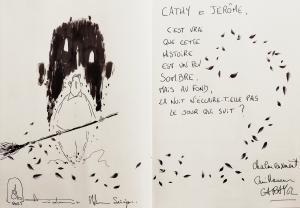 CATHY & JEROME,
C'EST VRAI
QUE CETTE
HISTOIRE
EST UN PEU
SOMBRE.
MAIS AU FOND,
LA NUIT N'ECLAIRE-T-ELLE PAS
LE JOUR QUI SUIT ?
Chaleureusement,
Guillaume